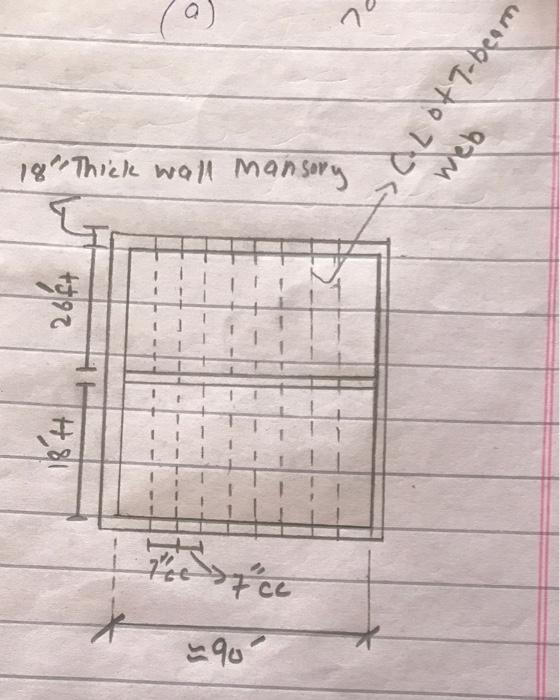 (a)
7'
18" Thick wall Mansory
C.L of T-beam
Web
26'ft
18'ft
7"cc
7"cc
≈90'